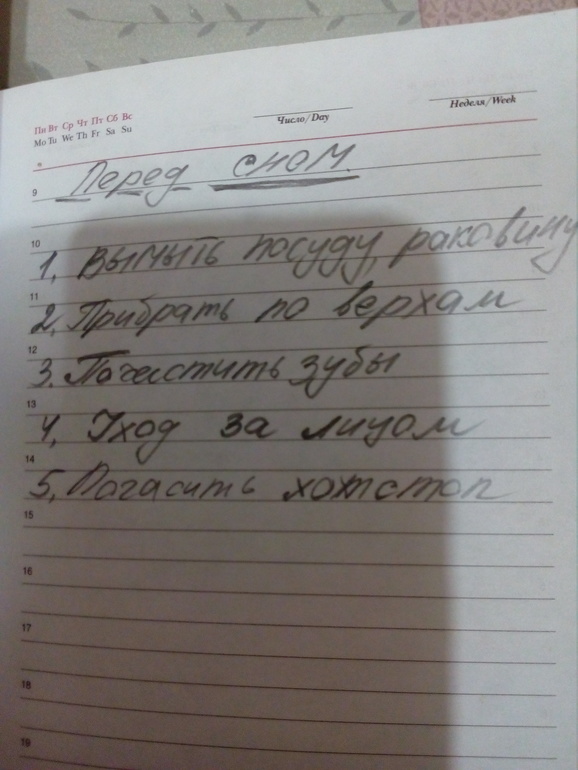 Пн Вт Ср Чт Пт Сб Вс
Mo Tu We Th Fr Sa Su
Число/Day
Неделя/Week
9 Перед сном
10
1, вымыть посуду, раковину
11
2, Прибрать по верхам
12
3. Почистить зубы
13
4, Уход за лицом
14
5, Погасить хотстоп
15
16
17
18
19